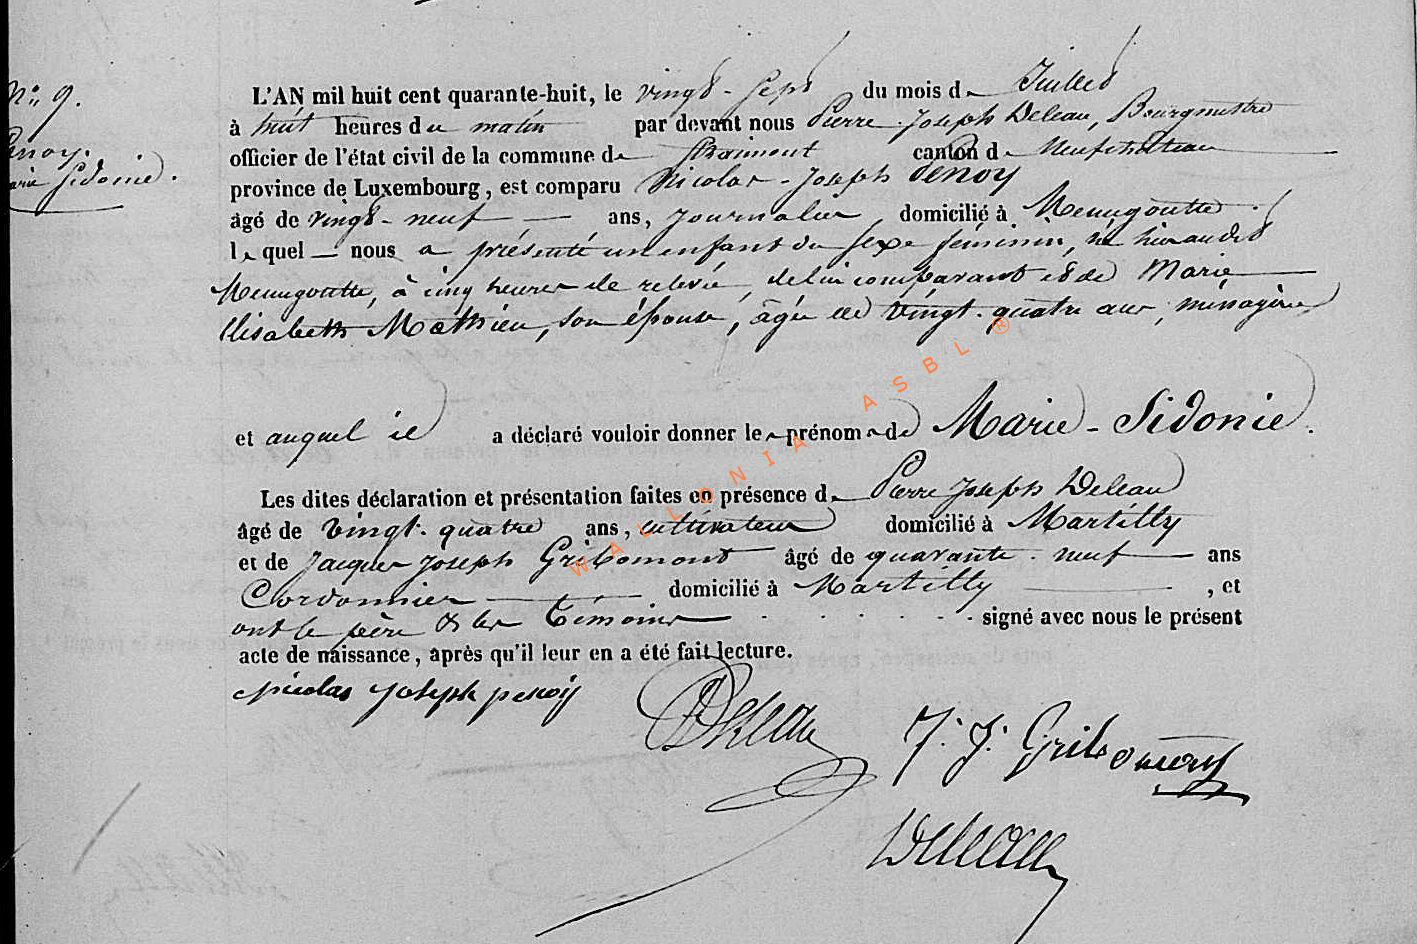 N° 9.
Penoy.
Marie Sidonie.
L'AN mil huit cent quarante-huit, le vingt-sept du mois de Juillet
à huit heures du matin par devant nous Pierre Joseph Deleau, Bourgmestre
officier de l'état civil de la commune de Straimont canton de Neufchâteau
province de Luxembourg, est comparu Nicolas-Joseph Penoy
âgé de vingt-neuf ans, Journalier, domicilié à Menugoutte.
lequel nous a présenté un enfant du sexe féminin, né hier audit
Menugoutte, à cinq heures de relevée, de lui comparant et de Marie
Elisabeth Mathieu, son épouse, âgée de vingt-quatre ans, ménagère
et auquel il a déclaré vouloir donner le prénom de Marie-Sidonie.
Les dites déclaration et présentation faites en présence de Pierre Joseph Deleau
âgé de vingt-quatre ans, cultivateur domicilié à Martilly
et de Jacques Joseph Gribomont âgé de quarante-neuf ans
Cordonnier domicilié à Martilly, et
ont le père & les témoins signé avec nous le présent
acte de naissance, après qu'il leur en a été fait lecture.
Nicolas joseph penoÿ
Deleau
J. J. Gribomont
Deleau
WALLONIA ASBL ®